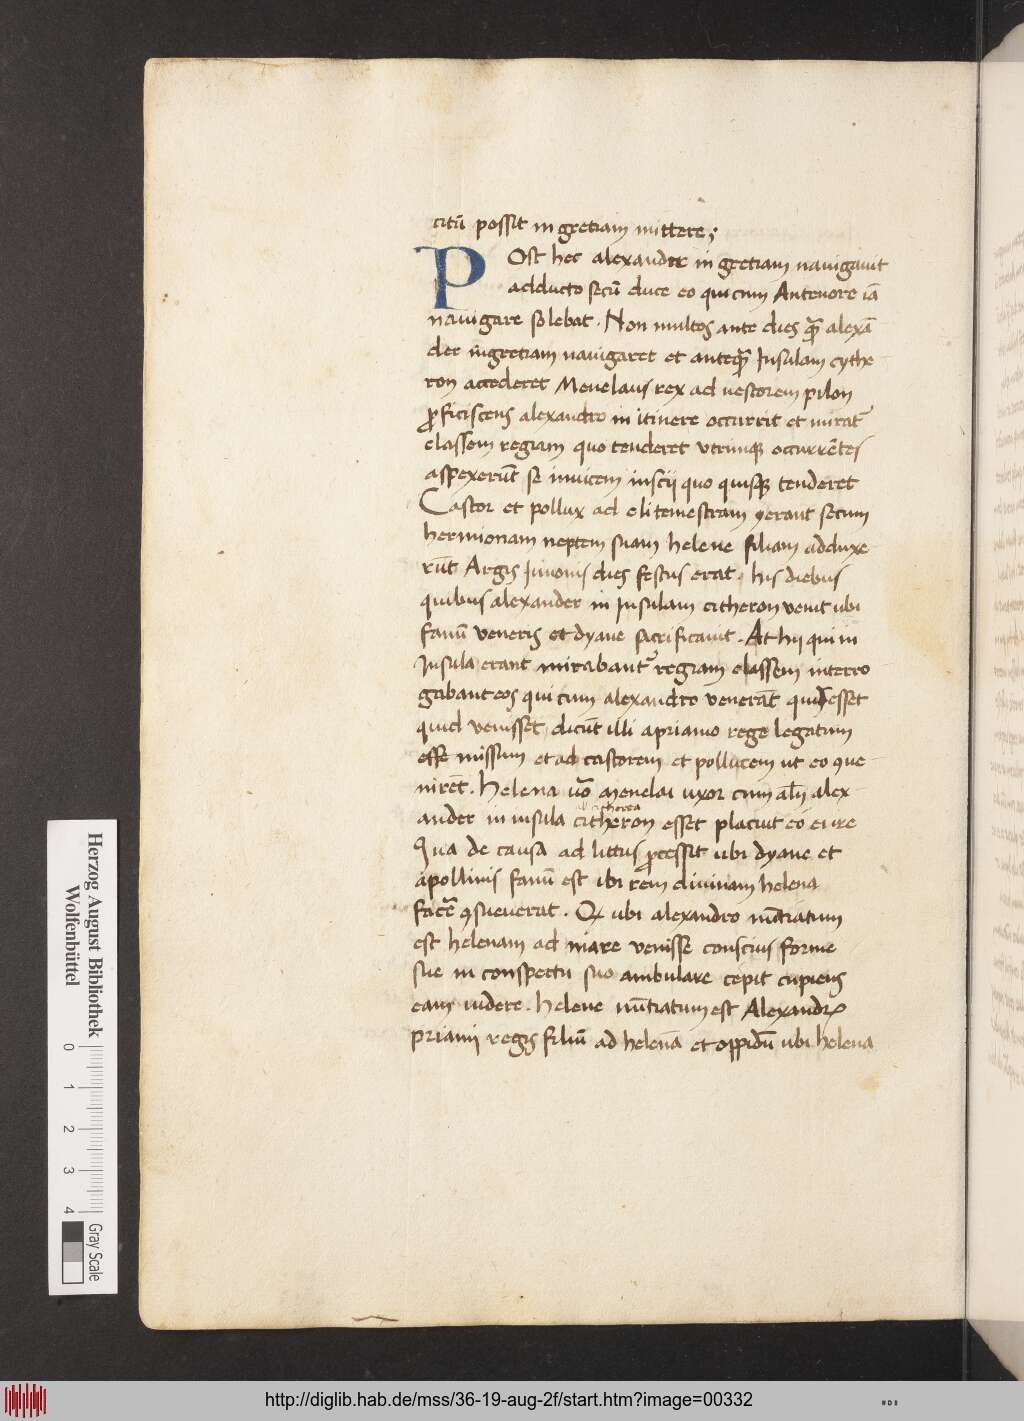 citū possit in gretiam mittere;
Post hec alexander in gretiam nauigauit
adducto secū duce eo qui cum Antenore iā
nauigare solebat. Non multos ante dies q̄ alexā
der in gretiam nauigaret et anteq̄ Insulam cythe
ron accederet Menelaus rex ad nestorem pilon
ꝓficiscens alexandro in itinere occurrit et mirat᷑
classem regiam quo tenderet vtrimqꝫ occurrētes
aspexerūt se inuicem inscij quo quisqꝫ tenderet
Castor et pollux ad clitemestram ꝯerant secum
hermionam neptem suam helene filiam adduxe
rūt Argis Iunonis dies festus erat. his diebus
quibus alexander in Insulam citheron venit ubi
fanū veneris et dyane sacrificauit. At hij qui in
Insula erant mirabant᷑ regiam classem interro
gabant eos qui cum alexandro venerāt quis esset
quid venisset dicūt illi a priamo rege legatum
esse missum et ad castorem et pollucem ut eo ꝯue
nirēt. Helena uō menelai uxor cum alex
ander in insula citheron esset placuit eo ire
Qua de causa ad littus ꝓcessit ubi dyane et
apollinis fanū est ibi rem diuinam helena
facē ꝯsueuerat. Qꝫ ubi alexandro nūtiatum
est helenam ad mare venisse conscius forme
sue in conspectu suo ambulare cepit cupiens
eam uidere. Helene nūtiatum est Alexandrꝫ
priami regis filiū ad helenā et oppidū ubi helena
Herzog August Bibliothek
Wolfenbüttel
0 1 2 3 4
Gray Scale
http://diglib.hab.de/mss/36-19-aug-2f/start.htm?image=00332